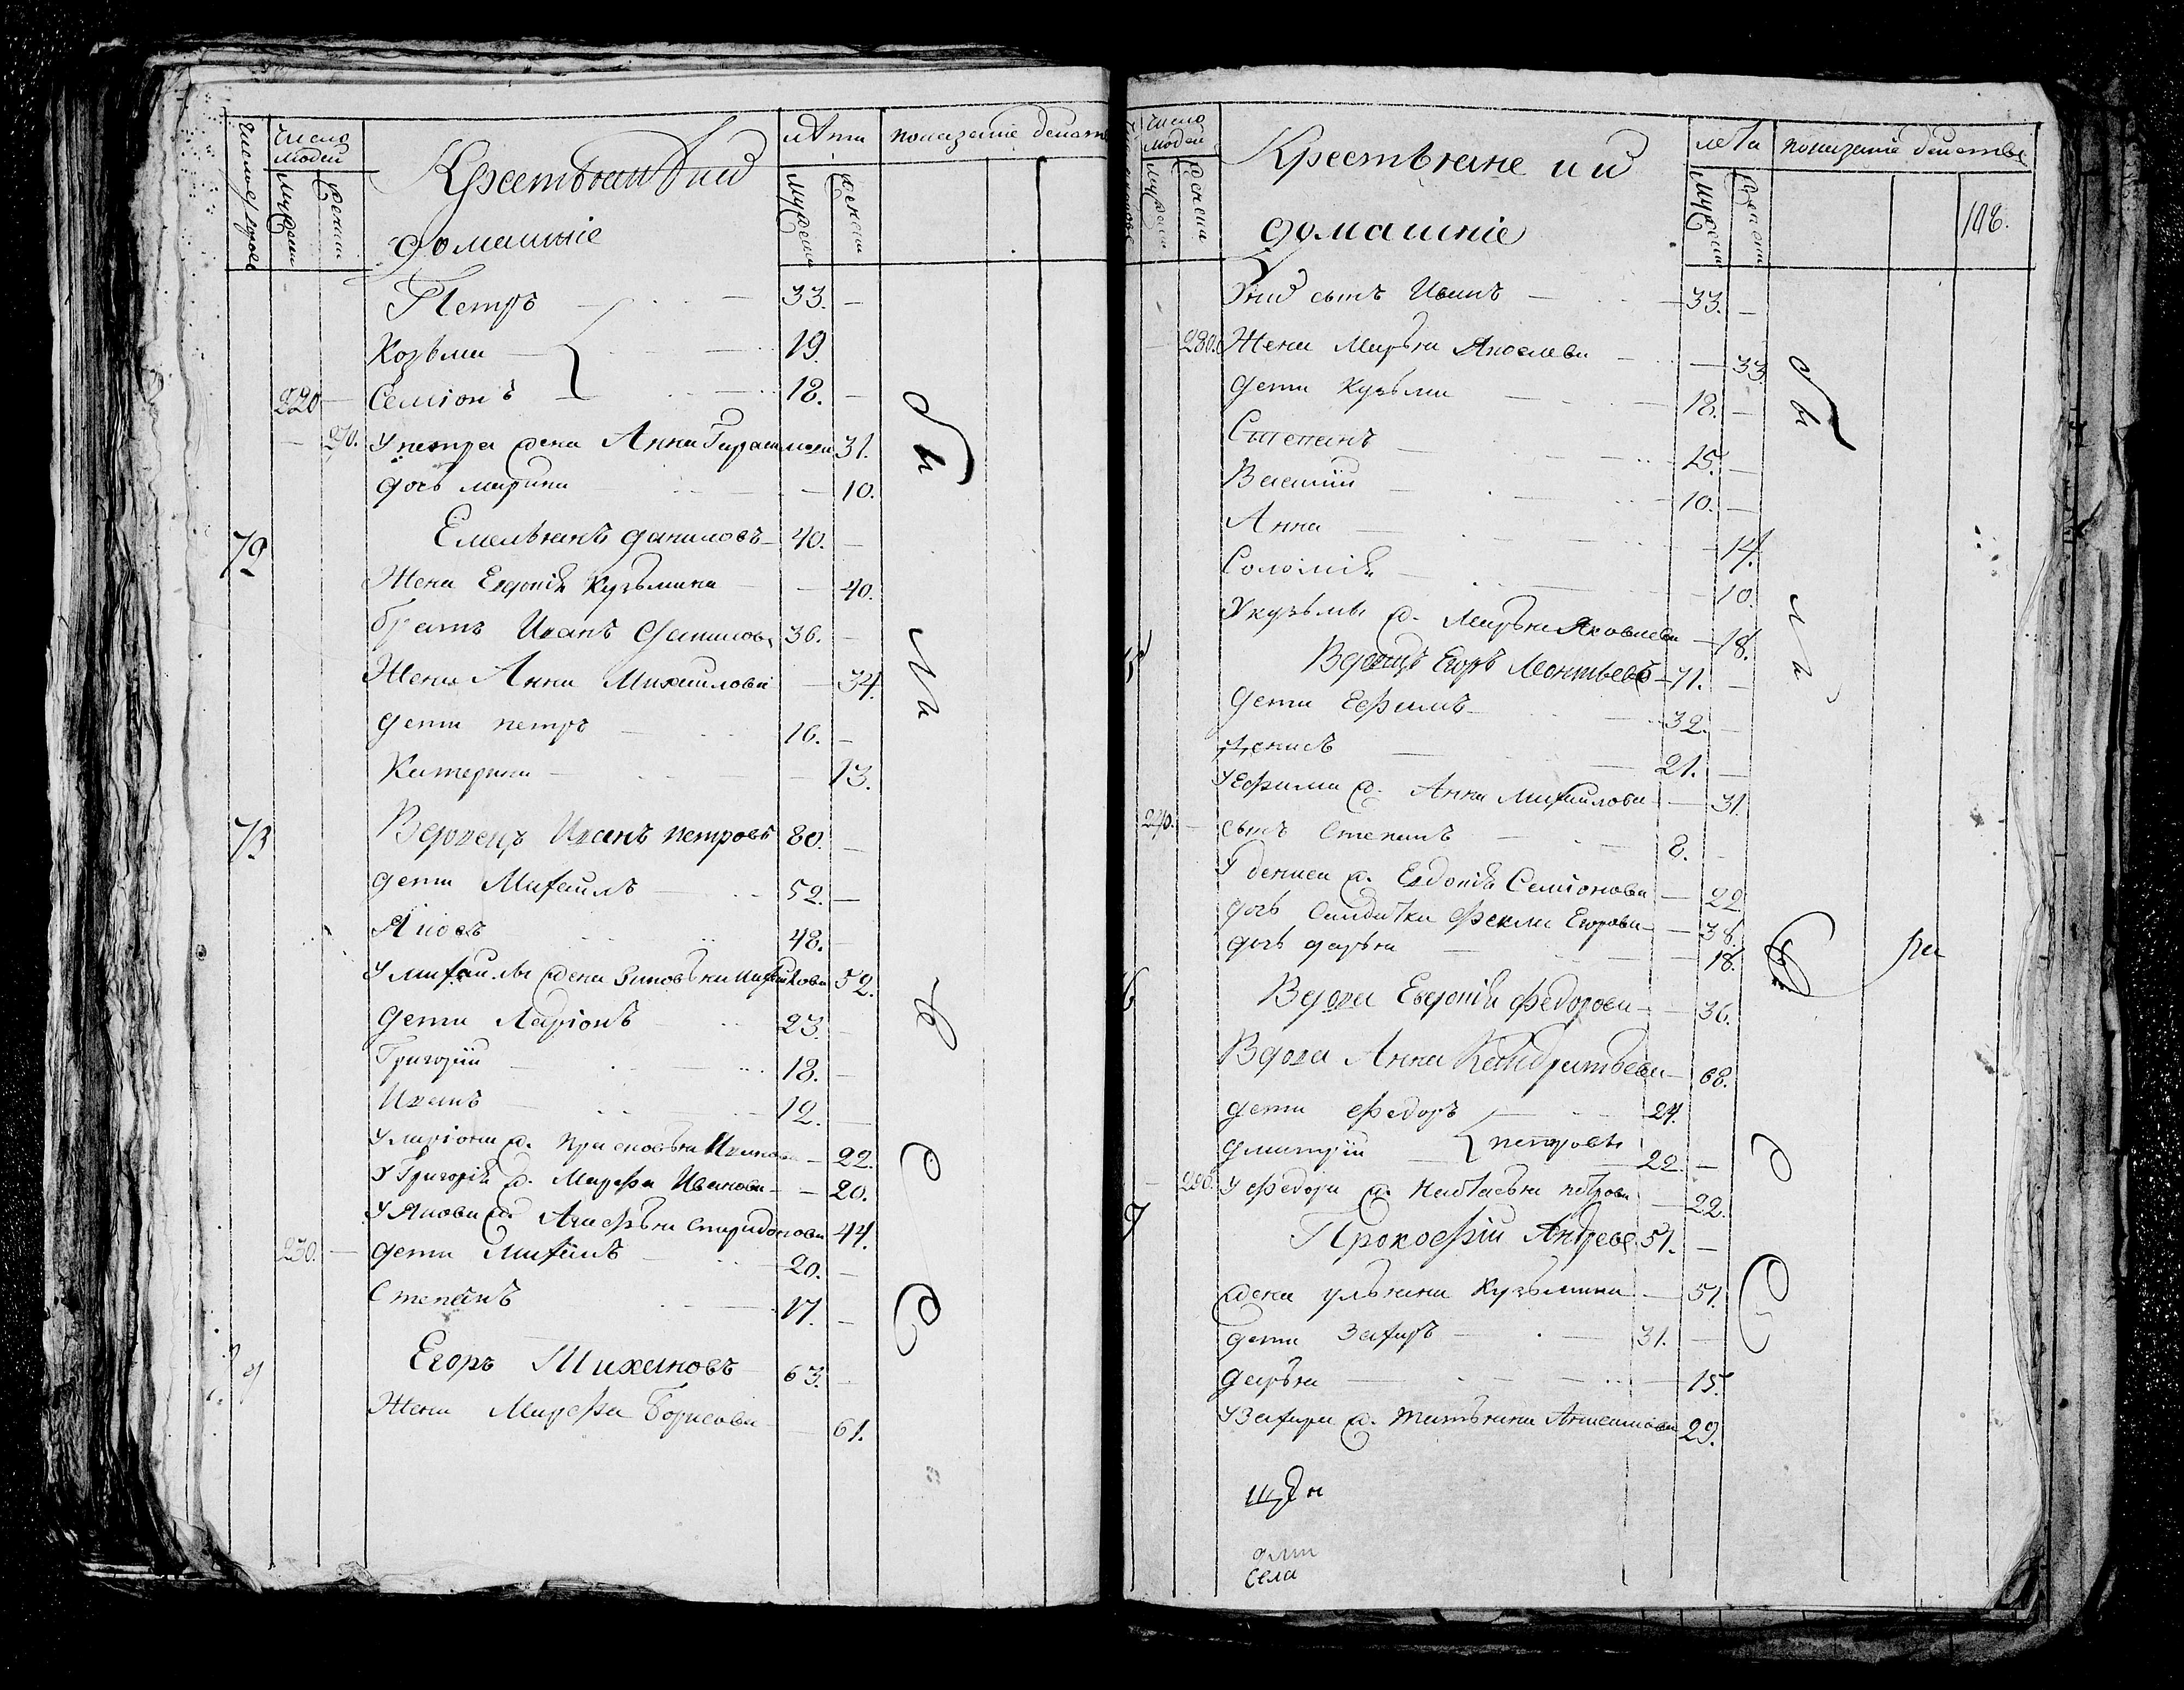 Число
людей
Крестьяне и их
лѣта
показаніе действ
мужеска
женска
мужеска
женска
домашніе
Петръ 33.
Козьма 19.
220 Семіонъ 18.
270. У петра жена Анна Гарасимова 31.
дочь марина 10.
72 Емельянъ даниловъ 40.
Жена Евдокія Кузьмина 40.
братъ Иванъ даниловъ 36.
Жена Анна Михаилова 34.
дети петръ 16.
Катерина 13.
73 Вдовецъ Иванъ петровъ 80.
дети Михаилъ 52.
Яковъ 48.
У михайлы жена Зиновья 52.
дети Ларіонъ 23.
Григорій 18.
Иванъ 12.
У ларіона ж. Прасковья Иванова 22.
У Григорія ж. Марфа Иванова 20.
У Якова ж. Агафья Спиридонова 44.
230. дети Михаилъ 20.
Степанъ 17.
Егоръ Михаиловъ 63.
Жена Марфа Борисова 61.
Число
людей
Крестьяне и их
лета
показаніе действе
мужеска
женска
мужеска
женска
108.
домашніе
Них сынъ Иванъ 33.
280. Жена Марья Яковлева 33.
дети Кузьма 18.
Степанъ 15.
Василій 10.
Анна 14.
Соломія 10.
У кузьмы ж. Марья Яковлева 18.
5 Вдовецъ Егоръ Леонтьевъ 71.
дети Ефимъ 32.
Денисъ 21.
У Ефима ж. Анна Михаилова 31.
240. сынъ Степанъ 8.
У дениса ж. Евдокія Семіонова 22
дочь Салдатка Фекла Егорова 38.
дочь дарья 18.
ра
6 Вдова Евдокія федорова 36.
Вдова Анна Кондратьева 68.
дети федоръ 24.
дмитрій { петровы 22.
290. У федора ж. Настасья петрова 22.
7 Прокофій Андреев 51.
жена ульяна Кузьмина 51.
дети Захаръ 31.
дарья 15.
У Захара ж. татьяна 29.
села